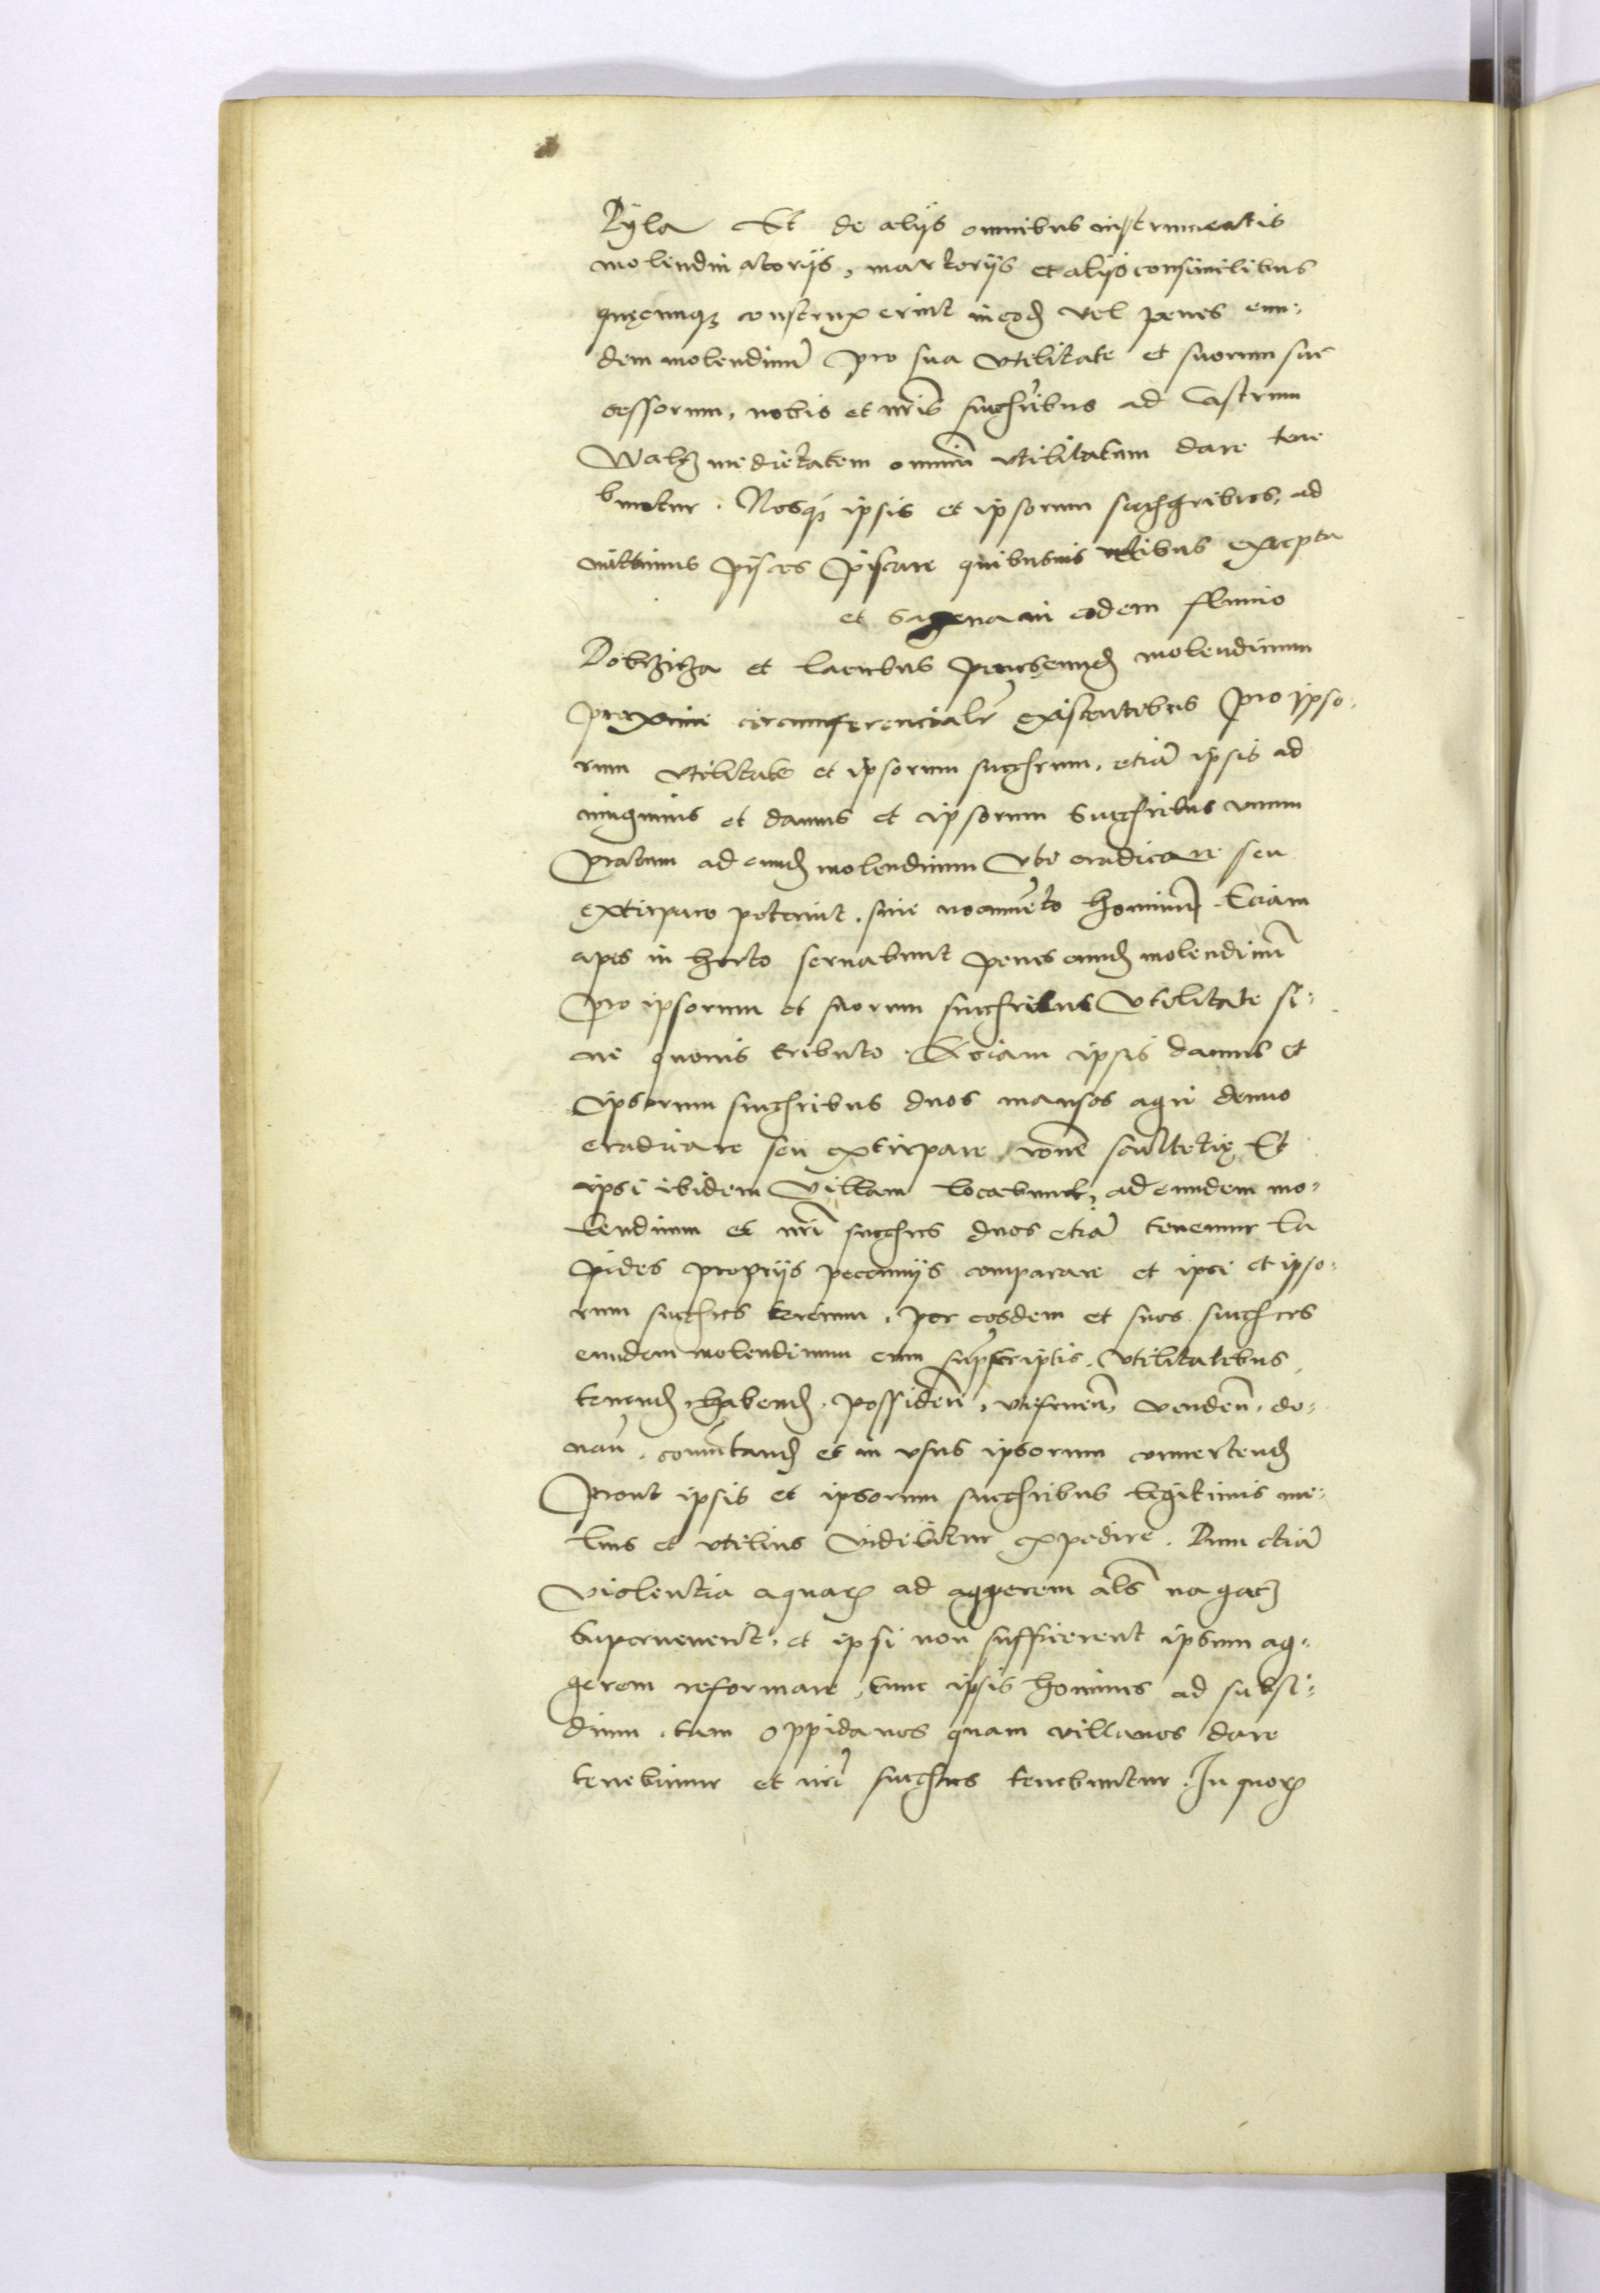 Pÿla Et de alijs omnibus instrumentis
molendinatorijs, martorijs et alijs consimilibus
quęcunqȝ construxerint in eođ vel penes eun-
dem molendinū pro sua vtilitate et suorum suc
cessorum, nobis et nr̄is succh̄ribus ad Castrum
Walcȝ medietatem omniū vtilitatum dare tene
buntur. Nosqȝ ipsis et ipsorum succh̄ribus, ad
mittimus pisces piscare quibusuis retibus excepta
et sagena in eodem fluuio
Dobrziza et lacubus penes eunđ molendinum
proxime circumferencialr̄ existentibus pro ipso-
rum vtilitate et ipsorum succh̄rum, etiā ipsis ad
iungimus et damus et ipsorum succh̄ribus vnum
pratum ad eunđ molendinum vbi eradicare seu
extirpare poterint, sine nocumēto hominū. Eciam
apes in horto seruabunt penes eunđ molendinū
pro ipsorum et suorum succh̄ribus vtilitate si-
ne quouis tributo. Eciam ipsis damus et
ipsorum succh̄ribus duos mansos agri denuo
eradicare seu extirpare, rōne scultetię Et
ipsi ibidem villam locabunt, ad eundem mo-
lendinum et nr̄i succh̄res duos etiā tenemur la
pides proprijs pecunijs comparare et ipsi et ipso-
rum succh̄res tercium, per eosdem et suos succh̄res
eundem molendinum cum sup̄scriptis, vtilitatibus,
tenenđ, habenđ, possidenđ, vtifruenđ, vendenđ, do-
nanđ, cōmutanđ et in vsus ipsorum conuertenđ
Prout ipsis et ipsorum succh̄ribus legitimis me-
lius et vtilius videbitur expedire. Dum etiā
violentia aquarꝫ ad aggerem al̄s na gacȝ
superuenerit, et ipsi non sufficerent ipsum ag-
gerem reformare, tunc ipsis homines ad subsi-
dium, tam oppidanos quam villanos dare
tenebimur et nr̄i succh̄res tenebuntur. In quorꝫ